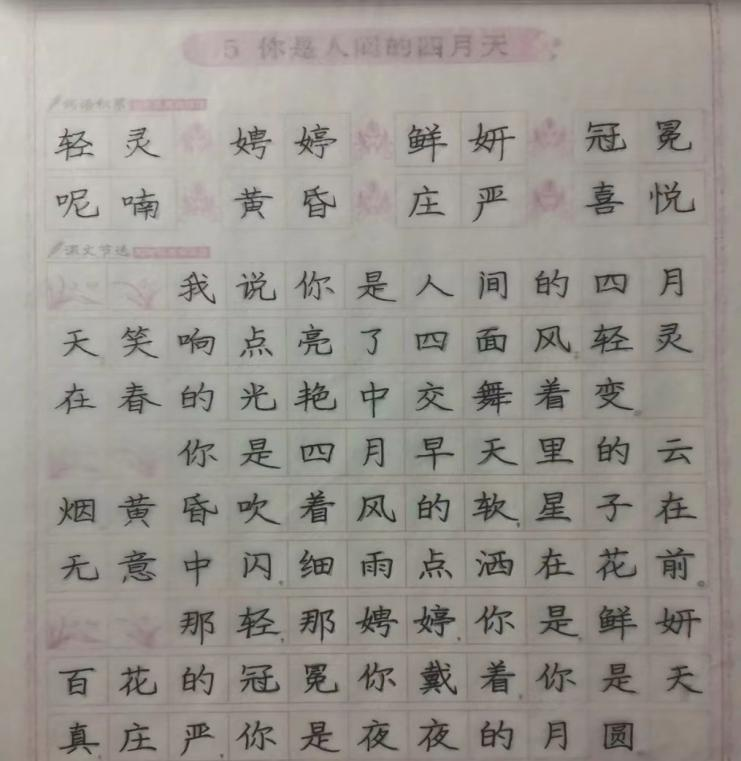 5 你是人间的四月天
词语积累
轻灵 娉婷 鲜妍 冠冕
呢喃 黄昏 庄严 喜悦
课文节选
我说你是人间的四月
天笑响点亮了四面风,轻灵
在春的光艳中交舞着变。
你是四月早天里的云
烟黄昏吹着风的软,星子在
无意中闪,细雨点洒在花前。
那轻,那娉婷,你是,鲜妍
百花的冠冕你戴着,你是天
真,庄严,你是夜夜的月圆